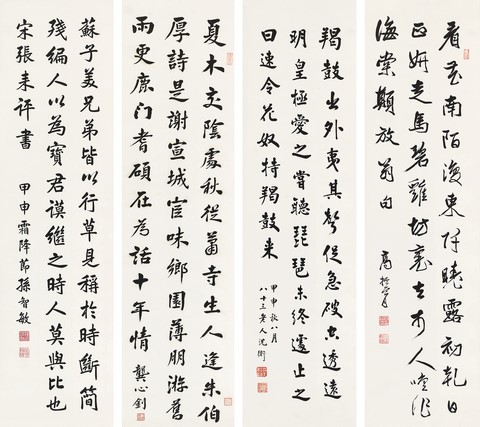 看花南陌復東阡曉露初乾日
正妍走馬碧雞坊裏去市人喚作
海棠顛放翁句
高振霄
羯鼓出外夷其聲促急破空透遠
明皇極愛之嘗聽琵琶未終遽止之
曰速令花奴持羯鼓來
甲申秋八月
八十三老人沈衛
夏木交陰處秋從蕭寺生人逢朱伯
厚詩是謝宣城宦味鄉園薄朋游舊
雨更鹿门耆碩在為話十年情 龔心釗
蘇子美兄弟皆以行草見稱於時斷簡
殘編人以為寶君謨繼之時人莫與比也
宋張耒評書 甲申霜降節孫智敏